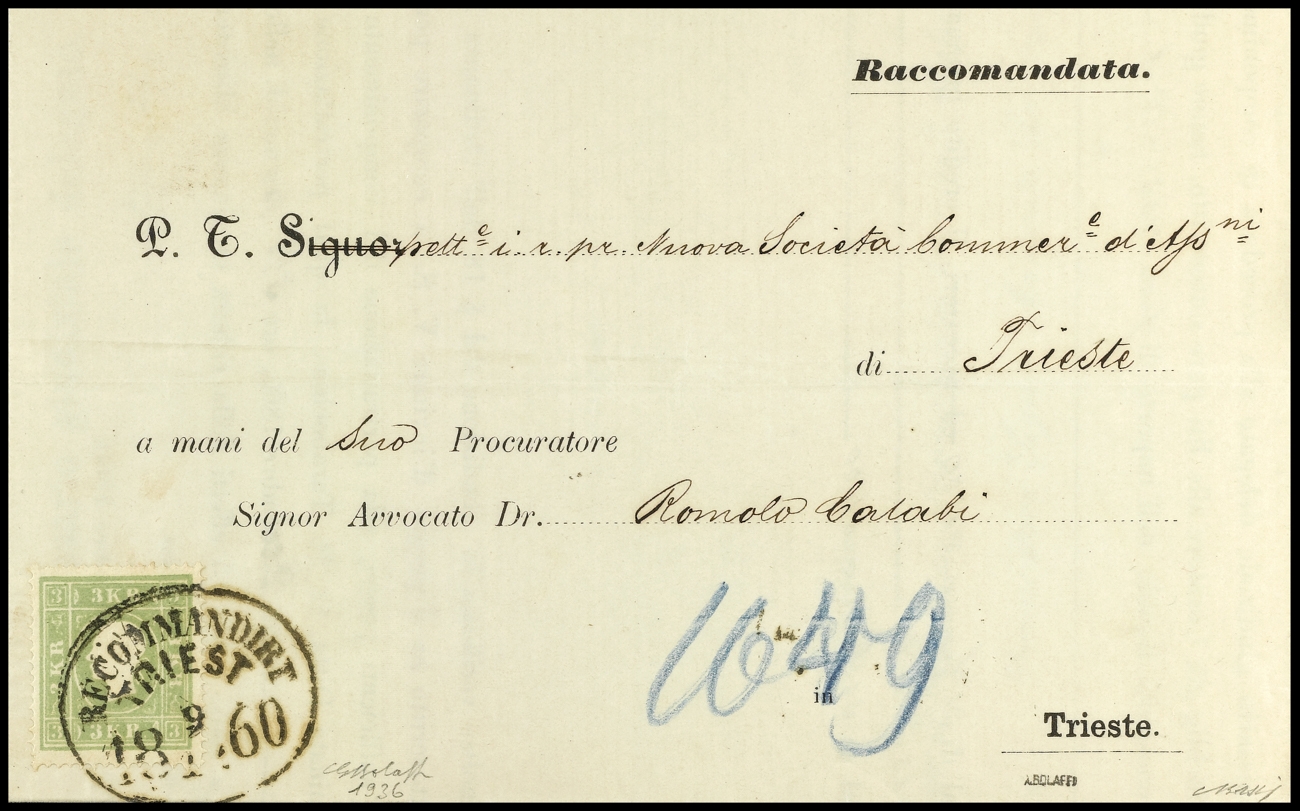 Raccomandata.
P. T. Signor pett^e i. r. pr. Nuova Società Commer^e d'Ass^ni
di Trieste
a mani del Suo Procuratore
Signor Avvocato Dr. Romolo Calabi
3 3 KR 3
3 KR
RECOMMANDIRT
TRIEST
9
18 60
3 3 KR 3
1649
in
Trieste.
1936
A.BOLAFFI